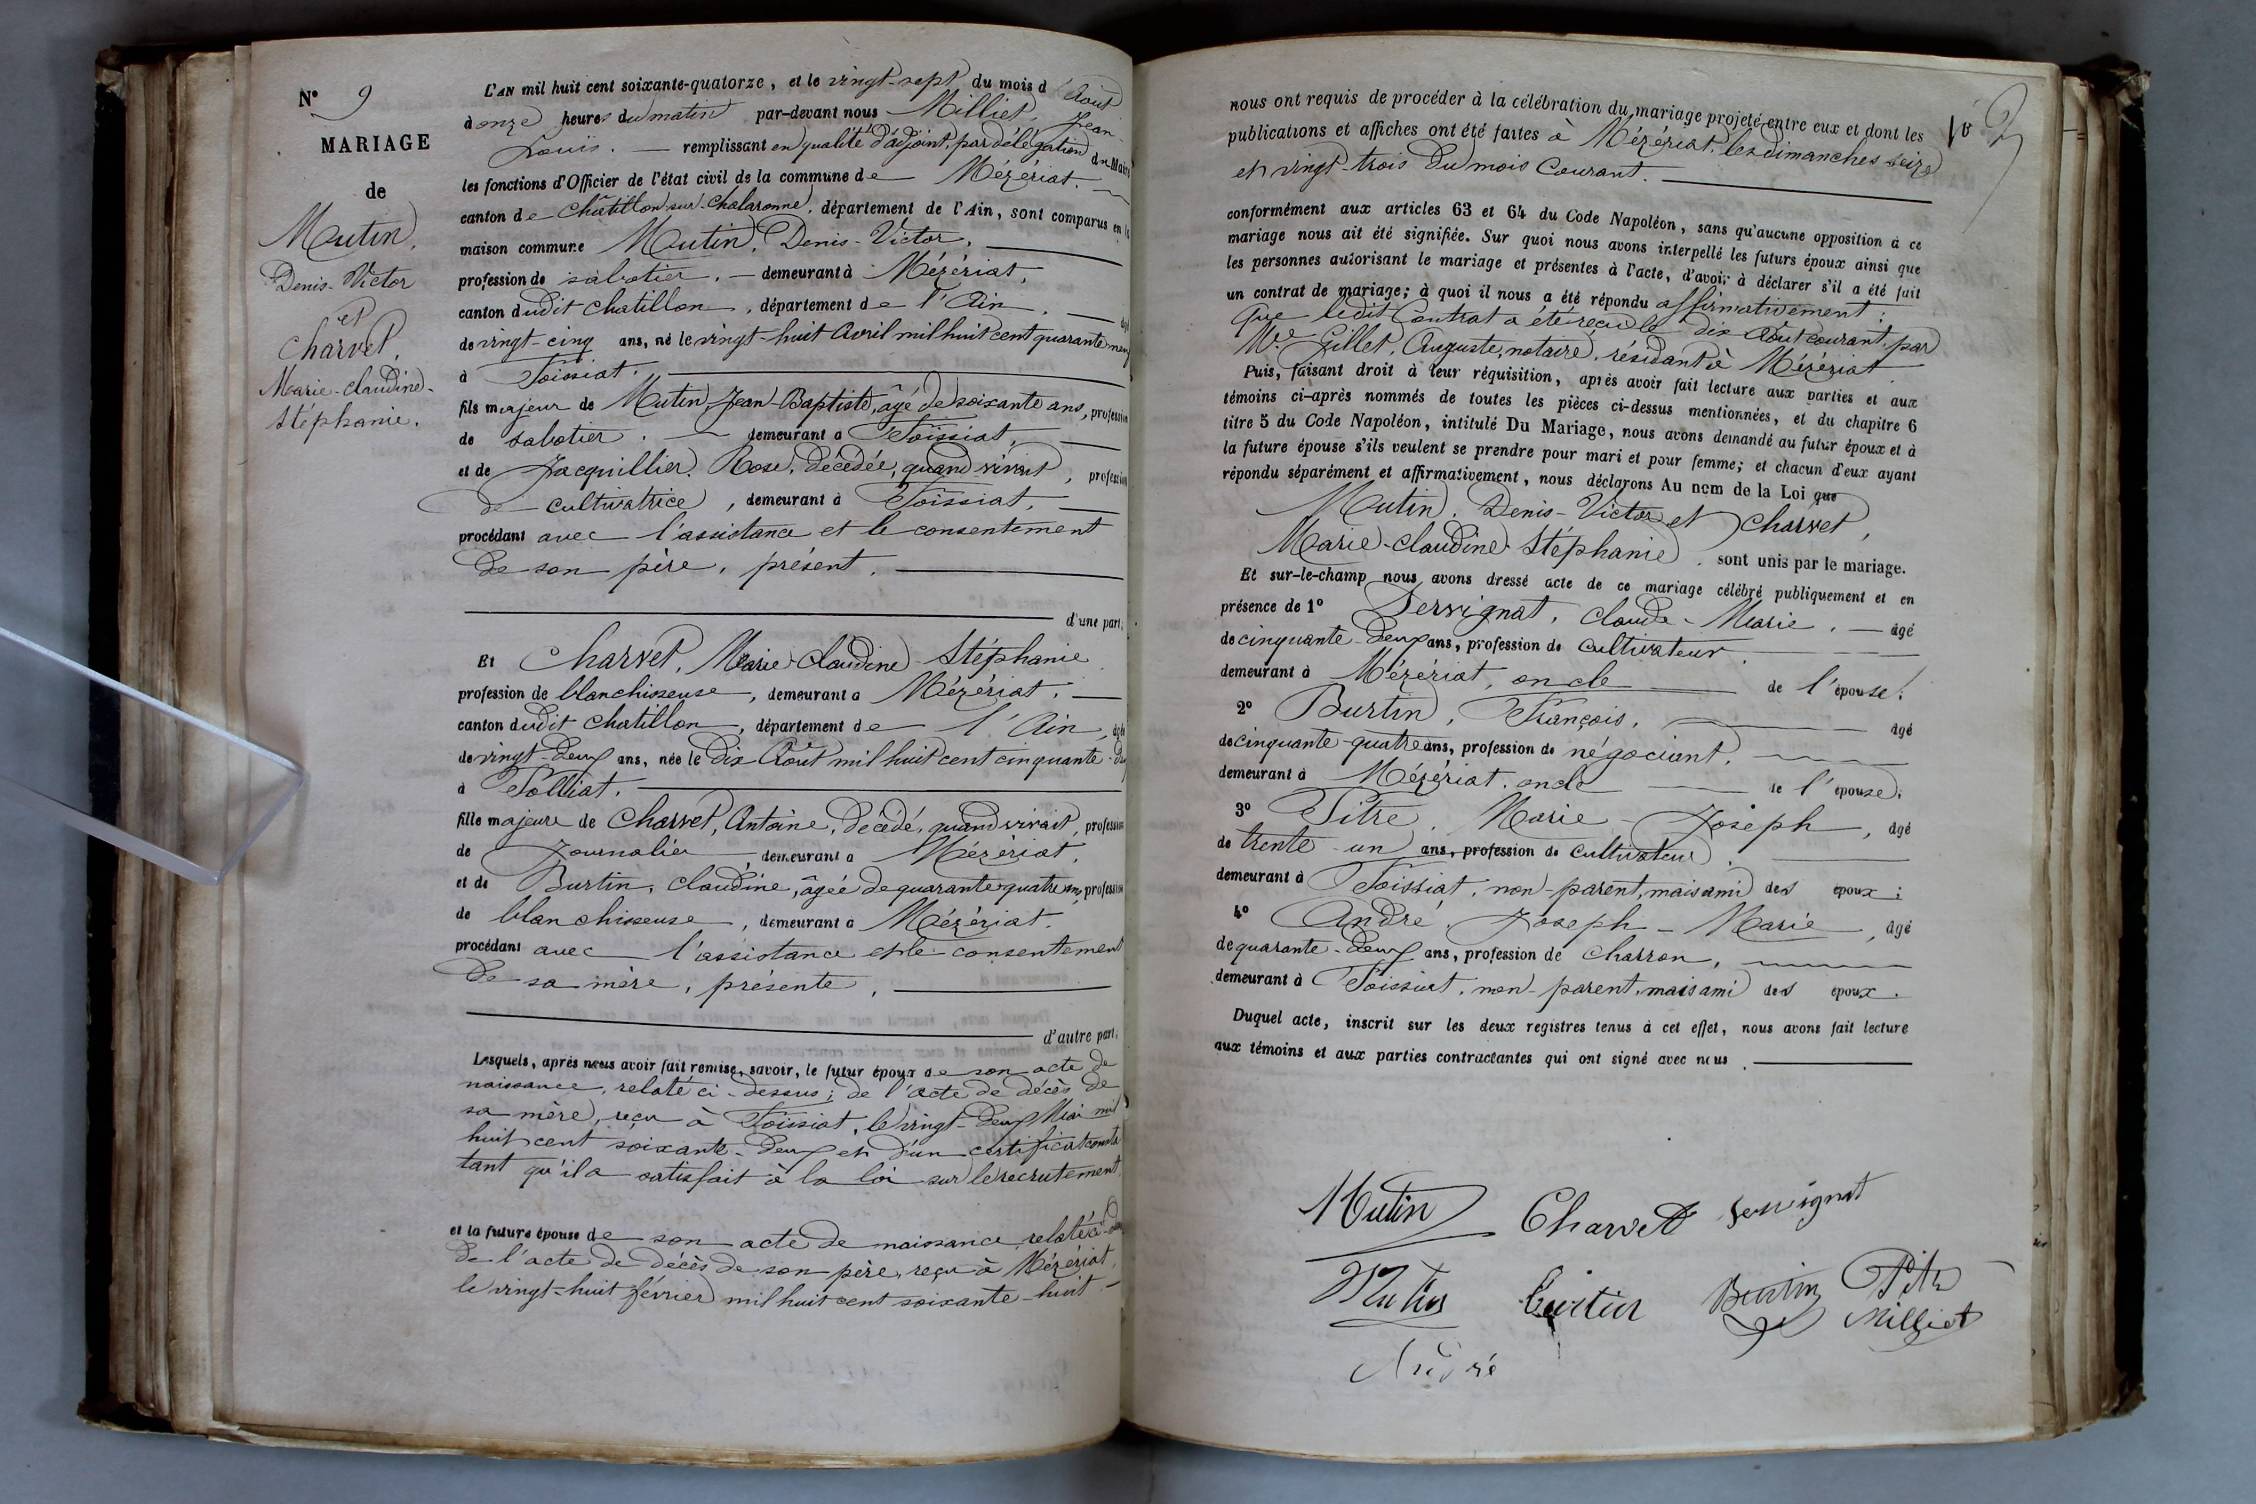 N° 9
MARIAGE
de
Mutin,
Denis-Victor
et
Charvet,
Marie-Claudine-
Stéphanie.
L'AN mil huit cent soixante-quatorze, et le vingt-sept du mois d'Août
à onze heures du matin par-devant nous Milliet, Jean
Louis. — remplissant en qualité d'adjoint, par délégation du Maire
les fonctions d'Officier de l'état civil de la commune de Mézériat.
canton de Châtillon-sur-Chalaronne, département de l'Ain, sont comparus en la
maison commune Mutin, Denis-Victor,
profession de sabotier. — demeurant à Mézériat,
canton dudit Chatillon, département de l'Ain, âgé
de vingt-cinq ans, né le vingt-huit Avril mil huit cent quarante neuf
à Foissiat.
fils majeur de Mutin, Jean-Baptiste, âgé de soixante ans, profession
de sabotier. — demeurant à Foissiat,
et de Jacquillier, Rose, décédée, quand vivait, profession
de cultivatrice, demeurant à Foissiat,
procédant avec l'assistance et le consentement
de son père, présent.
d'une part,
Et Charvet, Marie-Claudine-Stéphanie
profession de blanchisseuse, demeurant à Mézériat,
canton dudit Chatillon, département de l'Ain, âgée
de vingt-deux ans, née le dix Août mil huit cent cinquante-deux
à Polliat.
fille majeure de Charvet, Antoine, décédé, quand vivait, profession
de Journalier, demeurant à Mézériat,
et de Burtin, Claudine, âgée de quarante-quatre ans, profession
de blanchisseuse, demeurant à Mézériat.
procédant avec l'assistance et le consentement
de sa mère, présente,
d'autre part,
Lesquels, après nous avoir fait remise, savoir, le futur époux de son acte de
naissance, relaté ci-dessus; de l'acte de décès de
sa mère, reçu à Foissiat, le vingt-deux Mai mil
huit cent soixante-deux et d'un certificat consta
tant qu'il a satisfait à la loi sur le recrutement
et la future épouse de son acte de naissance, relaté ci-dessus
de l'acte de décès de son père, reçu à Mézériat,
le vingt-huit février mil huit cent soixante-huit.—
nous ont requis de procéder à la célébration du mariage projeté entre eux et dont les
publications et affiches ont été faites à Mézériat, les dimanches seize
et vingt-trois du mois courant.
conformément aux articles 63 et 64 du Code Napoléon, sans qu'aucune opposition à ce
mariage nous ait été signifiée. Sur quoi nous avons interpellé les futurs époux ainsi que
les personnes autorisant le mariage et présentes à l'acte, d'avoir à déclarer s'il a été fait
un contrat de mariage; à quoi il nous a été répondu affirmativement;
que ledit Contrat a été reçu le dix Août courant, par
Me Gillet, Auguste, notaire, résidant à Mézériat
Puis, faisant droit à leur réquisition, après avoir fait lecture aux parties et aux
témoins ci-après nommés de toutes les pièces ci-dessus mentionnées, et du chapitre 6
titre 5 du Code Napoléon, intitulé Du Mariage, nous avons demandé au futur époux et à
la future épouse s'ils veulent se prendre pour mari et pour femme; et chacun d'eux ayant
répondu séparément et affirmativement, nous déclarons Au nom de la Loi que
Mutin, Denis-Victor et Charvet,
Marie-Claudine-Stéphanie, sont unis par le mariage.
Et sur-le-champ nous avons dressé acte de ce mariage célébré publiquement et en
présence de 1° Servignat, Claude-Marie. — âgé
de cinquante-deux ans, profession de cultivateur.
demeurant à Mézériat, oncle de l'épouse;
2° Burtin, François, âgé
de cinquante-quatre ans, profession de négociant,
demeurant à Mézériat, oncle de l'épouse;
3° Pitre, Marie-Joseph, âgé
de trente-un ans, profession de cultivateur,
demeurant à Foissiat, non-parent, mais ami des époux;
4° André, Joseph-Marie, âgé
de quarante-deux ans, profession de charron,
demeurant à Foissiat, non-parent, mais ami des époux.
Duquel acte, inscrit sur les deux registres tenus à cet effet, nous avons fait lecture
aux témoins et aux parties contractantes qui ont signé avec nous.
Mutin Charvet Servignat
Mutin Burtin Burtin Pitre
Milliet
André